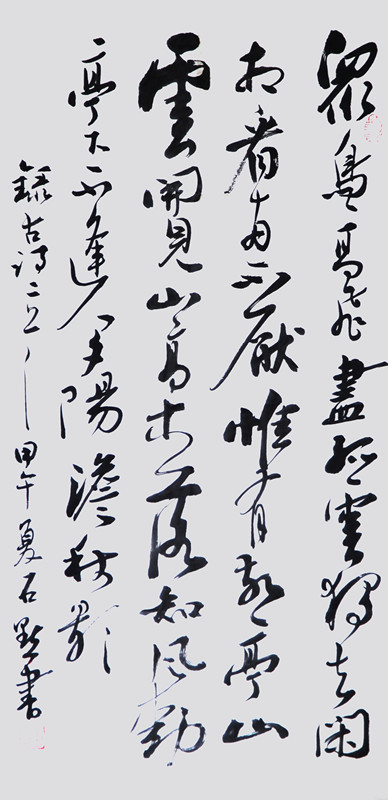 眾鳥高飛盡孤雲獨去閑
相看两不厭惟有敬亭山
雲開見山高木落知風勁
亭下不逢人夕陽澹秋影
錄古詩二 甲午夏石 書